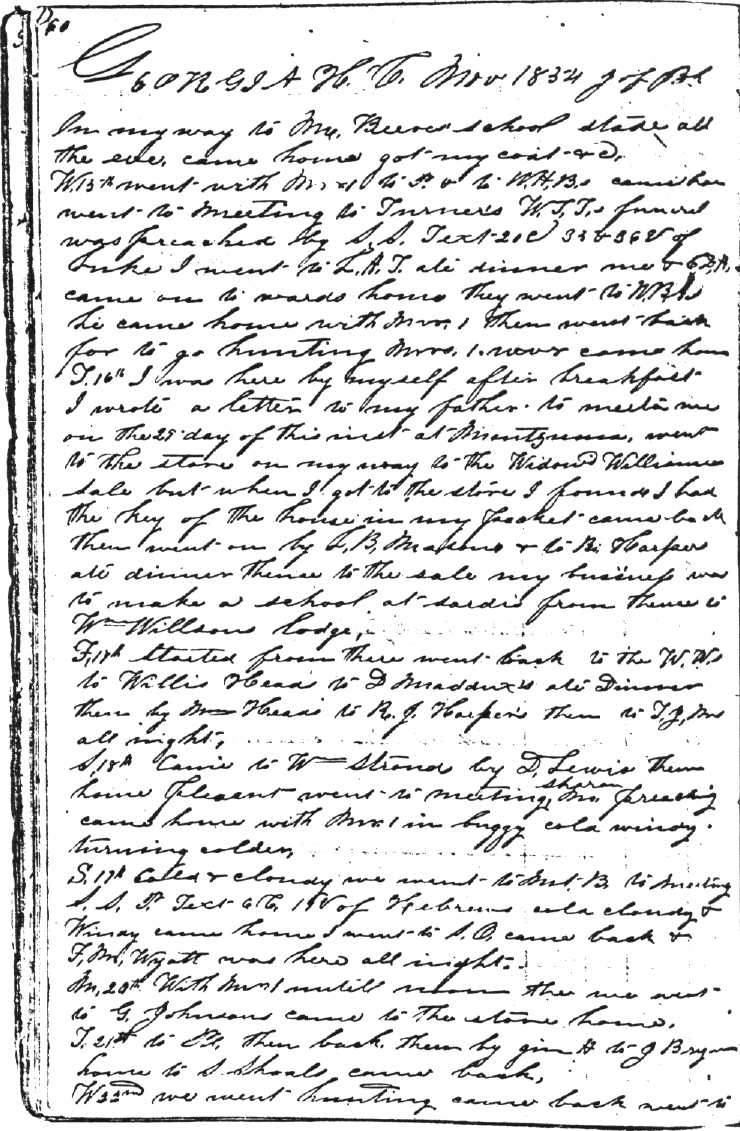 60
GEORGIA H. C. Nov 1834 J of
In my way to Mr. Beeves school staid all
the eve, came home got my coat &c,
W,15th went with Mrs 1 to P. & to W.H.Bs came
went to Meeting to Turner's W.T,T,s funeral
was preached by S,S, Text 20 C 35 & 36 V of
Luke I went to L.A.T. ate dinner me &
came on to wards home they went to W.B
he came home with Mrs. 1 then went back
for to go hunting Mrs. 1. never came home
T,16th I was here by myself after breakfast
I wrote a letter to my father to meet me
on the 29 day of this inst at Montezuma, went
to the store on my way to the Widow Williams
sale but when I got to the store I found I had
the key of the house in my pocket came back
then went on by L,B, Masons & to R. Harpers
ate dinner thence to the sale my business was
to make a school at sardis from thence to
Wm Willsons lodge,
F,17th Started from there went back to the W. Ws
to Willis Heads to D Maddux's ate Dinner
then by Heads to R. J. Harper's then to T,J, Ms
all night,
S,18th Came to Wm Strouds by D, Lewis then
home pleasant went to meeting, Mr. Sharon preaching
came home with Mrs 1 in buggy cold windy
turning colder,
S, 19th Cold & cloudy we went to Mt. B. to Meeting
S. S. P. Text 6 C, 19 V of Hebrews cold cloudy &
Windy came home went to S. O. came back &
F, M, Wyatt was here all night.
M, 20th With Mrs 1 untill noon the we went
to G. Johnsons came to the store home.
T. 21st to then back, then by gin H to J Bryan
home to S. Shoals came back,
W 22nd we went hunting came back went to